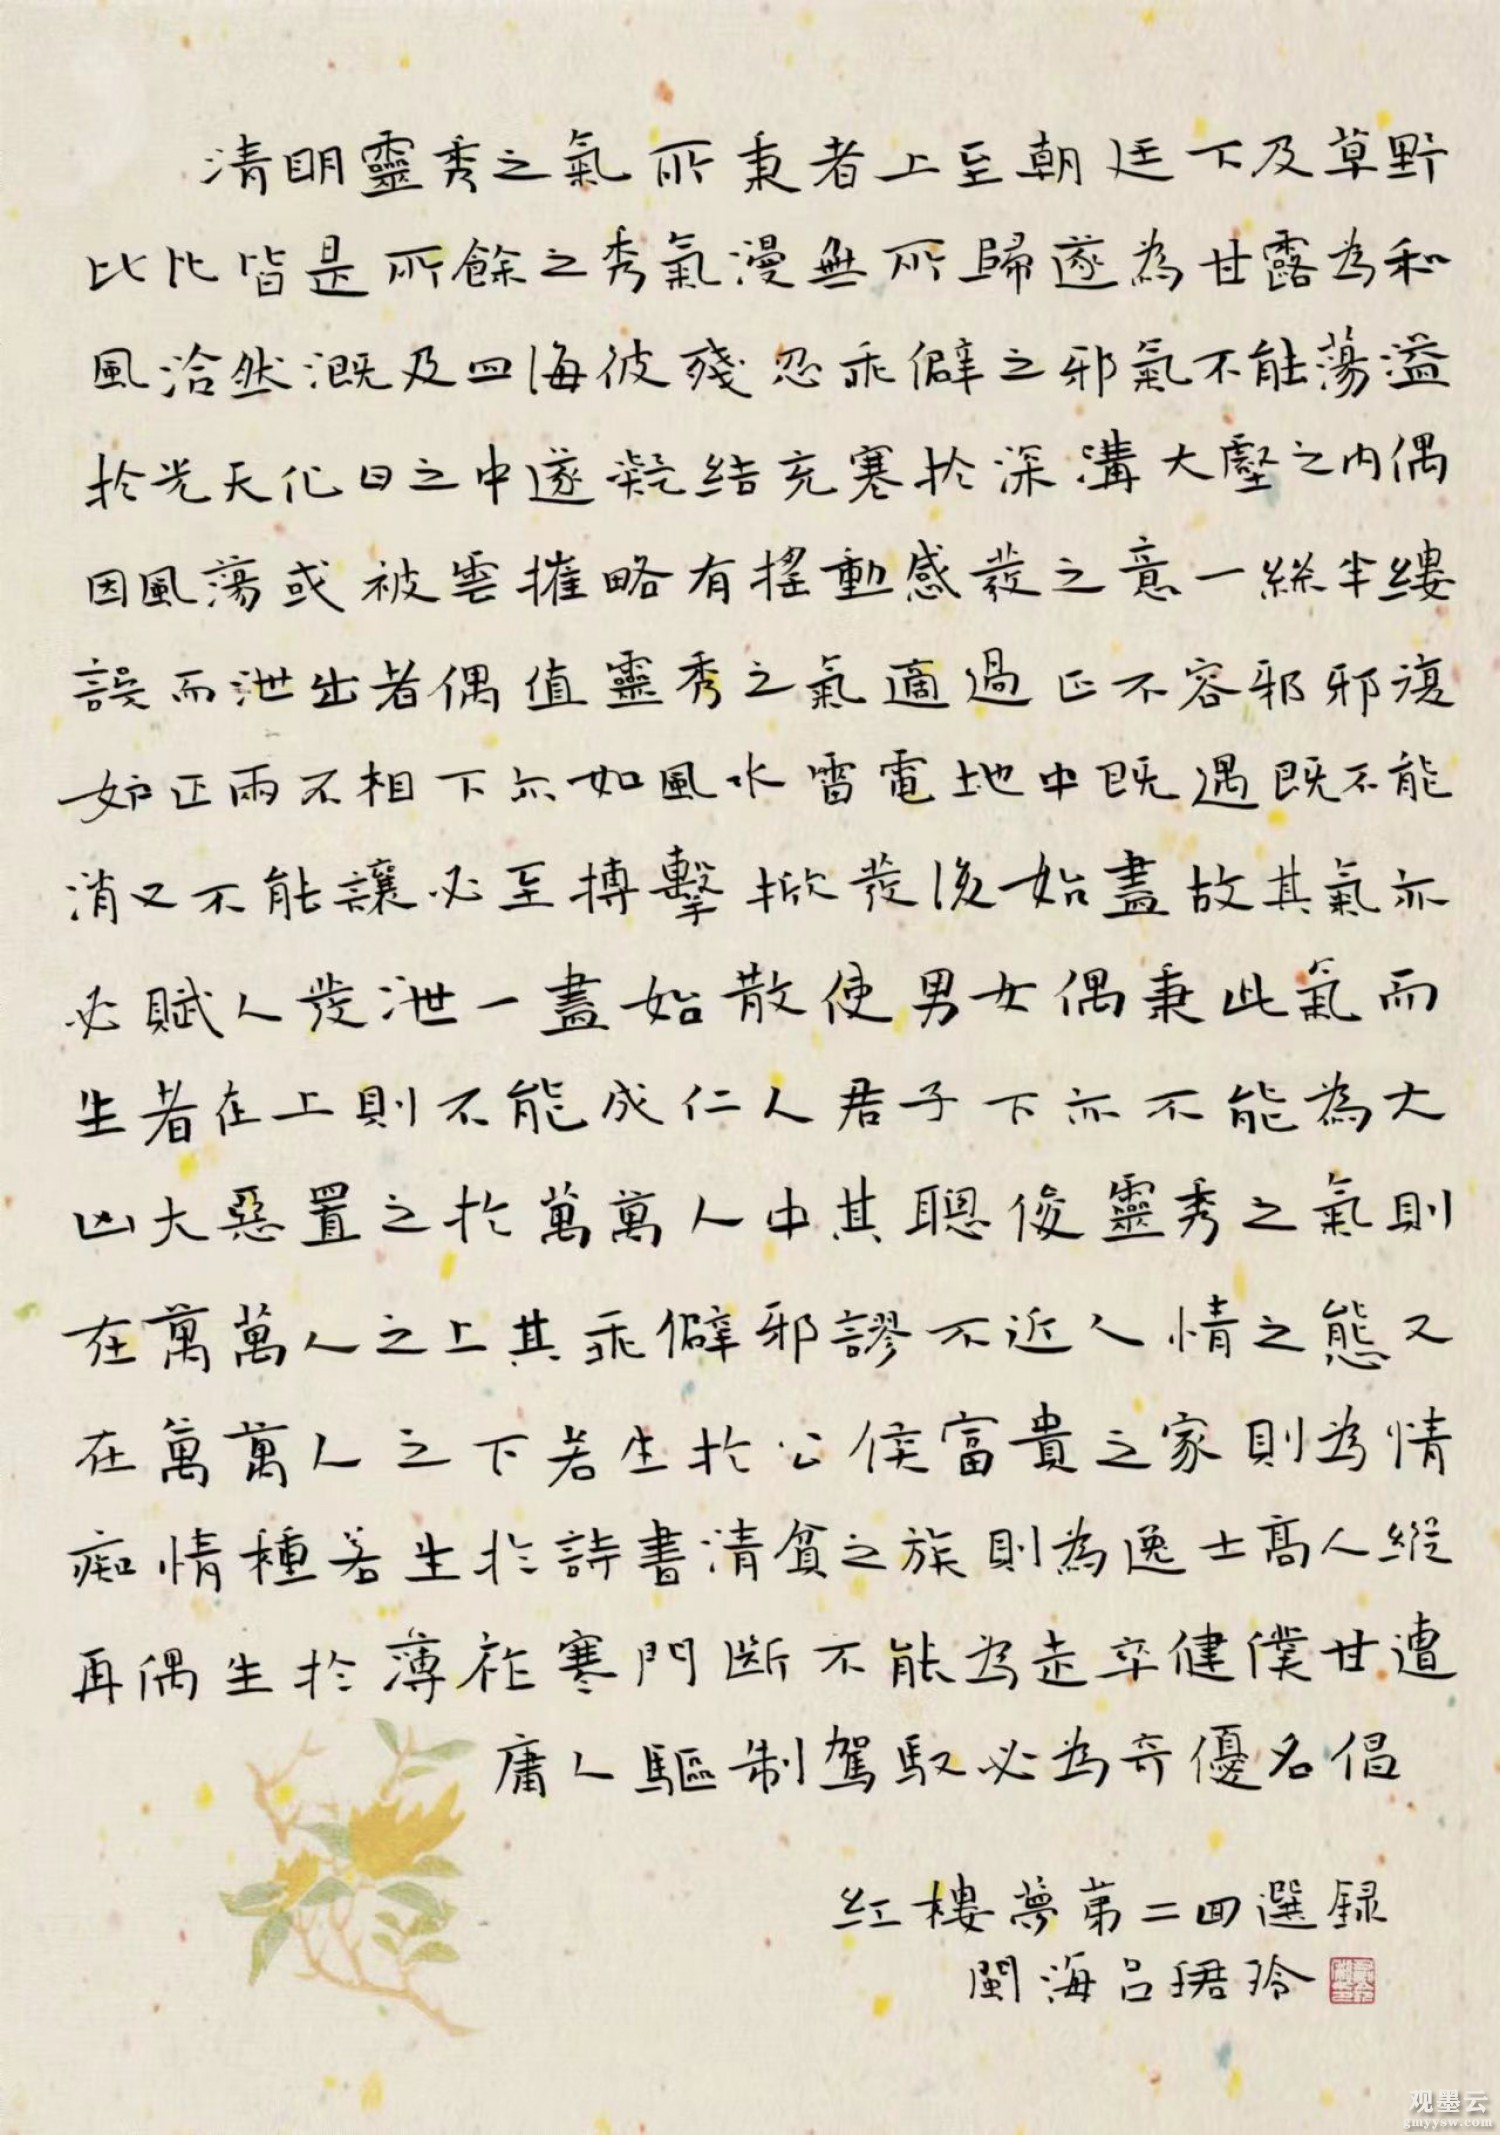 清明靈秀之氣所秉者上至朝廷下及草野
比比皆是所餘之秀氣漫無所歸遂為甘露為和
風洽然溉及四海彼殘忍乖僻之邪氣不能蕩溢
於光天化日之中遂凝結充塞於深溝大壑之內偶
因風蕩或被雲摧略有搖動感發之意一絲半縷
誤而泄出者偶值靈秀之氣適過正不容邪邪復
妒正兩不相下亦如風水雷電地中既遇既不能
消又不能讓必至搏擊掀發後始盡故其氣亦
必賦人發泄一盡始散使男女偶秉此氣而
生者在上則不能成仁人君子下亦不能為大
凶大惡置之於萬萬人中其聰俊靈秀之氣則
在萬萬人之上其乖僻邪謬不近人情之態又
在萬萬人之下若生於公侯富貴之家則為情
痴情種若生於詩書清貧之族則為逸士高人縱
再偶生於薄祚寒門斷不能為走卒健僕甘遭
庸人驅制駕馭必為奇優名倡
紅樓夢第二回選録
閩海呂珺玲
观墨云
gmyysw.com